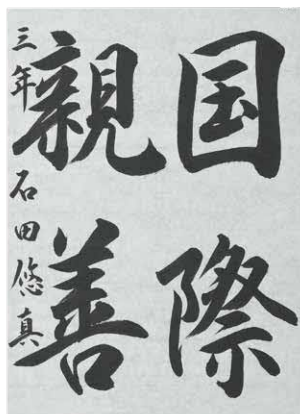 国際
親善
三年 石田悠真